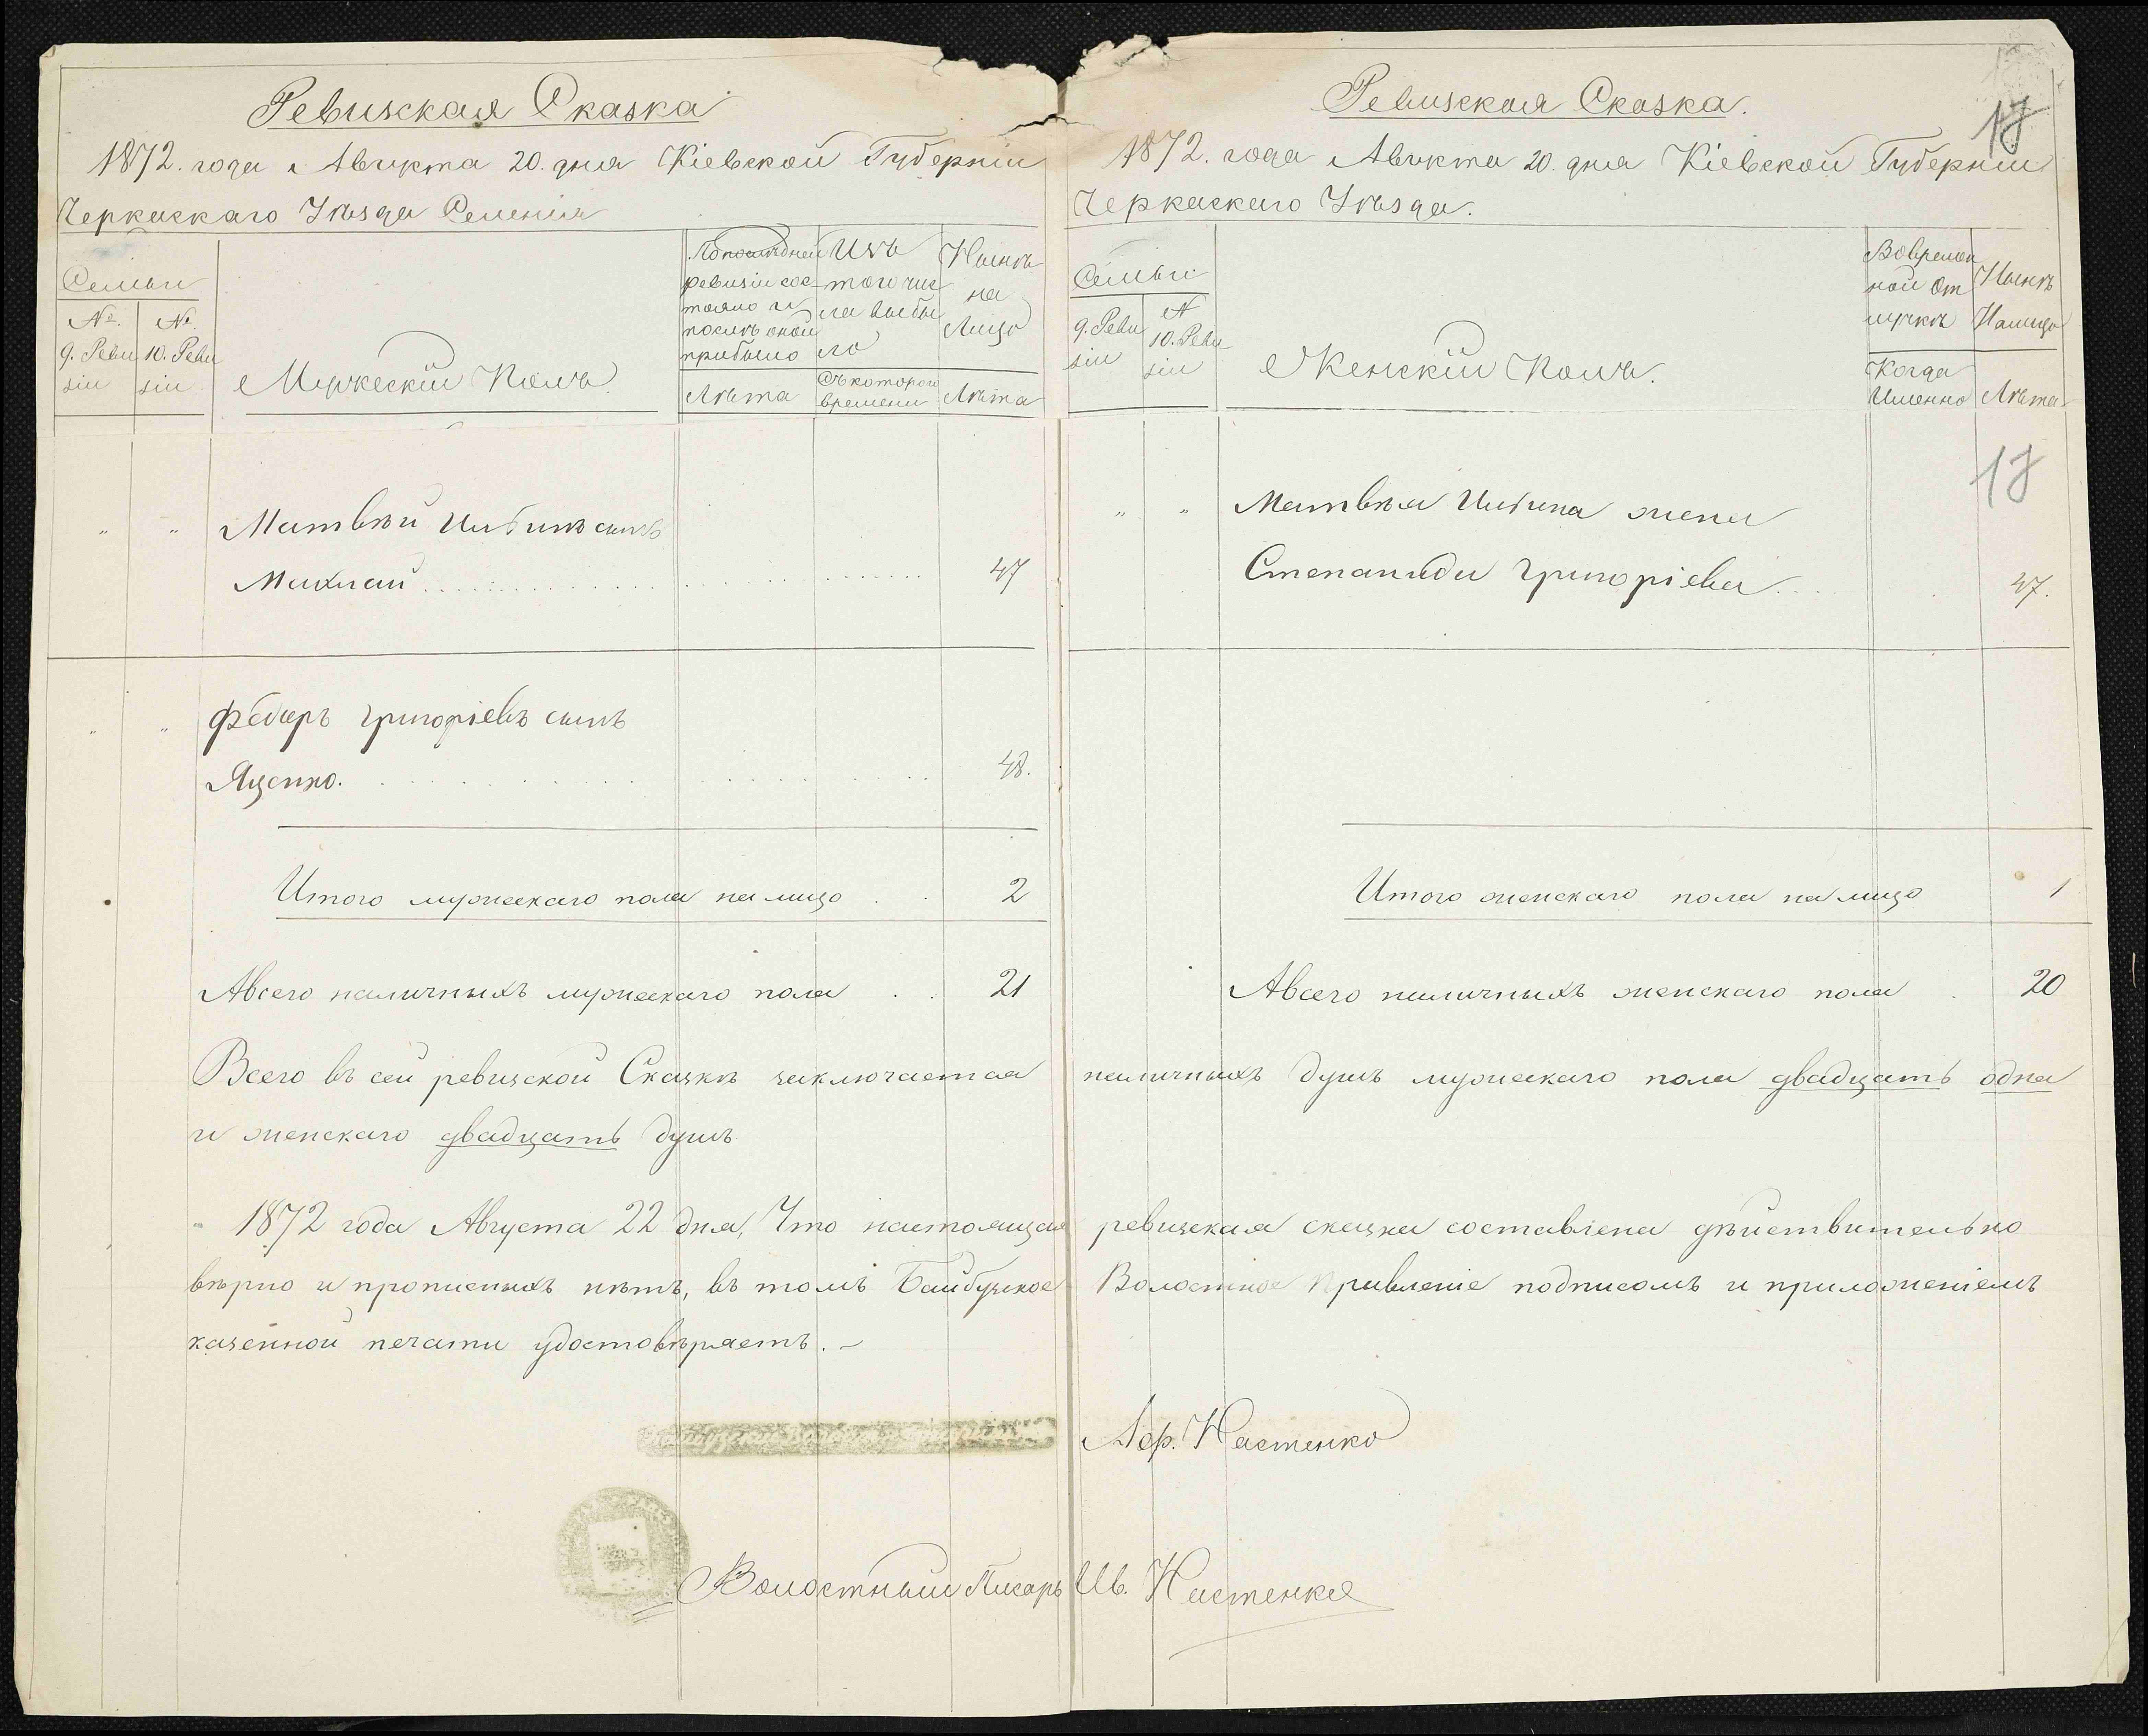 Ревизская Сказка
1872. года Августа 20. дня Кіевской Губерніи
Черкаскаго Уѣзда Селенія
Семьи
№. 9. Ревизіи
№ 10. Ревизіи
Мужескій Полъ
По последней ревизіи состояло и послѣ оной прибыло
Лѣта
Изъ того числа выбыло
Съ котораго времени
Нынѣ на Лицо
Лѣта
" " Матвѣй сынъ
47
" " Федоръ Григоріевъ сынъ
Яценко. 48.
Итого мужескаго пола на лицо 2
А всего наличныхъ мужескаго пола 21
Ревизская Сказка.
17
1872. года Августа 20. дня Кіевской Губерніи
Черкаскаго Уѣзда.
Семьи
9. Ревизіи
№ 10. Ревизіи
Женскій Полъ.
Во временной отлучкѣ
Когда Именно
Нынѣ Налицо
Лѣта
17
" " Матвѣя жена
Степанида Григоріева 47.
Итого женскаго пола на лицо 1
А всего наличныхъ женскаго пола 20
Всего въ сей ревизской Сказкѣ заключается наличныхъ душъ мужескаго пола двадцать одна
и женскаго двадцать душъ
1872 года Августа 22 дня, Что настоящая ревизская сказка составлена дѣйствительно
вѣрно и прописныхъ нѣтъ, въ томъ Байбузское Волостное Правленіе подписомъ и приложеніемъ
казенной печати удостовѣряетъ.
Аф. Настенко
Волостный Писарь Ив. Настенко